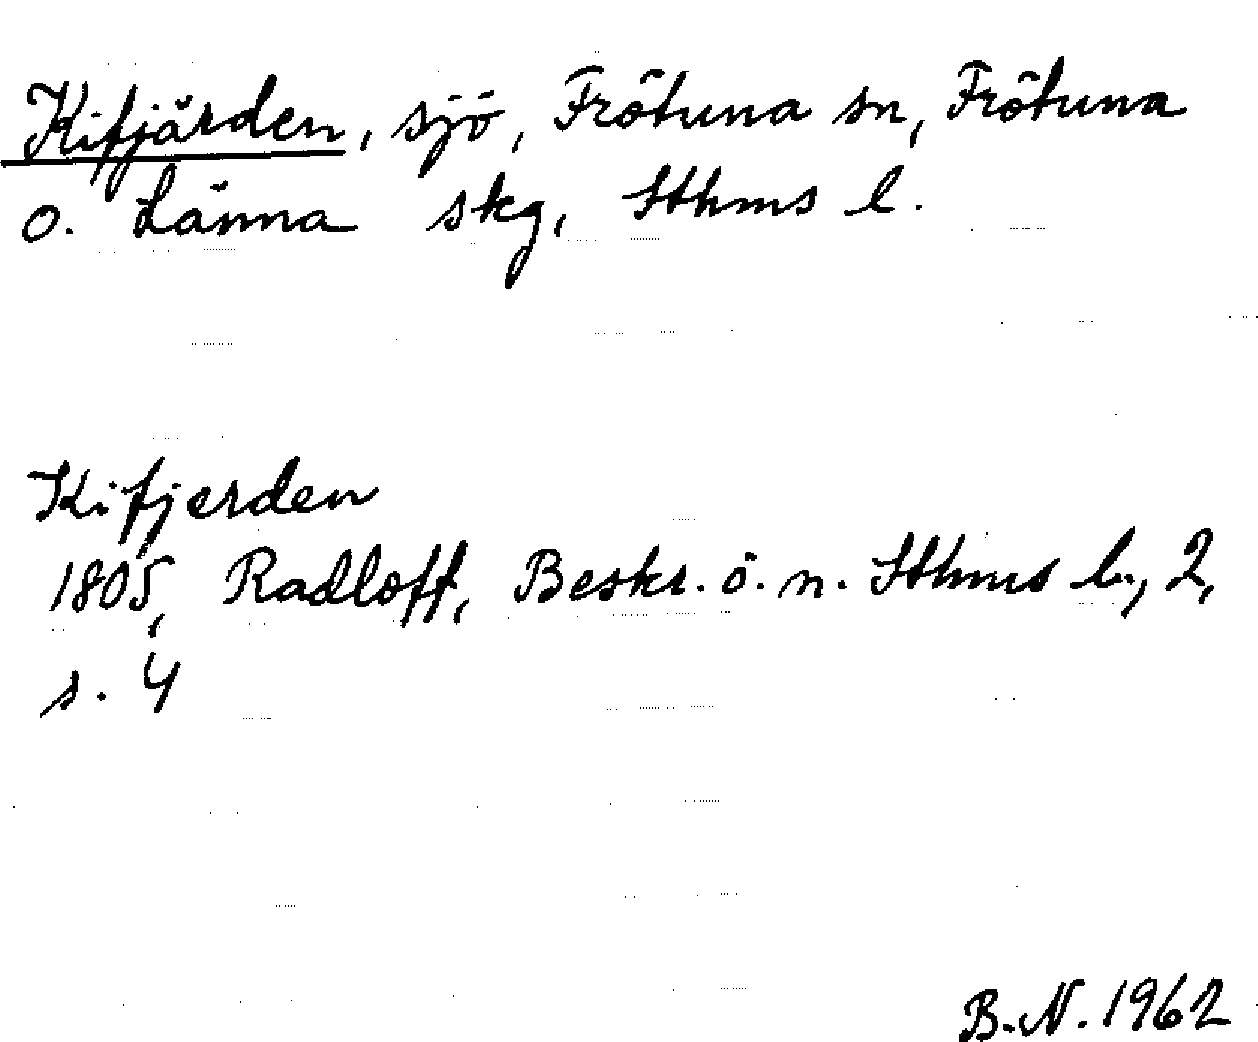 Kifjärden, sjö, Frötuna sn, Frötuna
o. Länna skg, Sthms l.
Kifjerden
1805, Radloff, Beskr. ö. n. Sthms l., 2,
s. 4
B.N. 1962